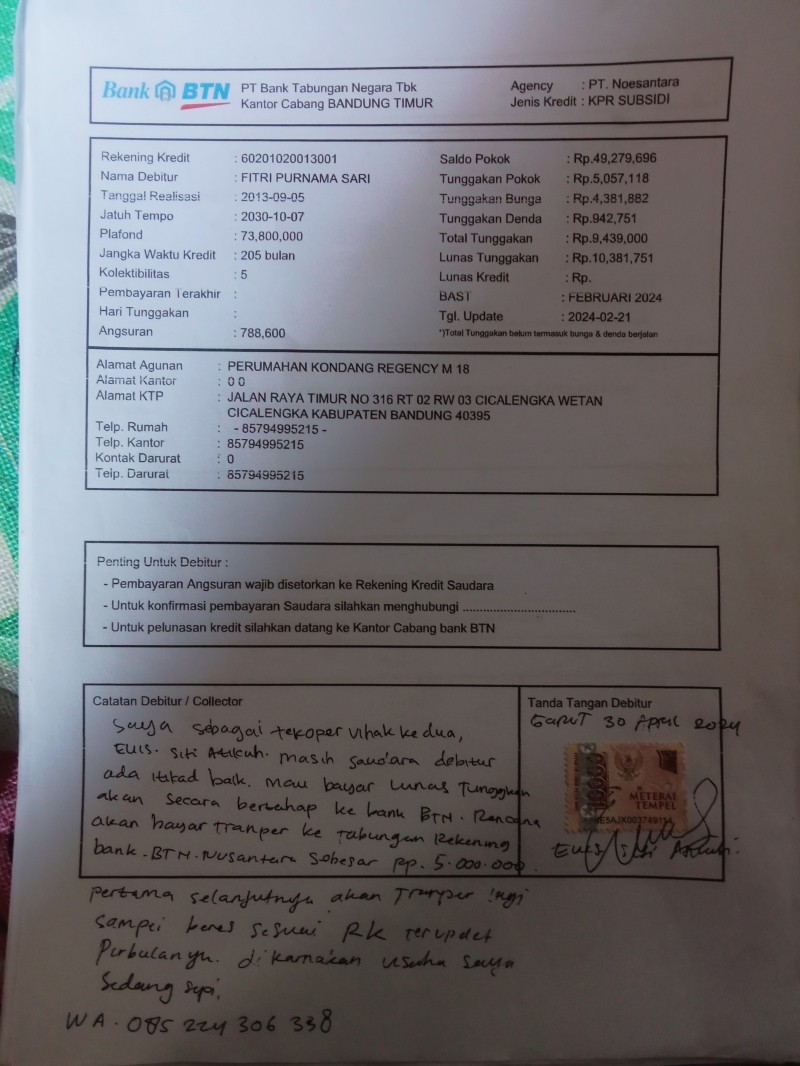 Bank BTN
PT Bank Tabungan Negara Tbk
Kantor Cabang BANDUNG TIMUR
Agency : PT. Noesantara
Jenis Kredit : KPR SUBSIDI
Rekening Kredit : 60201020013001
Nama Debitur : FITRI PURNAMA SARI
Tanggal Realisasi : 2013-09-05
Jatuh Tempo : 2030-10-07
Plafond : 73,800,000
Jangka Waktu Kredit : 205 bulan
Kolektibilitas : 5
Pembayaran Terakhir :
Hari Tunggakan :
Angsuran : 788,600
Saldo Pokok : Rp.49,279,696
Tunggakan Pokok : Rp.5,057,118
Tunggakan Bunga : Rp.4,381,882
Tunggakan Denda : Rp.942,751
Total Tunggakan : Rp.9,439,000
Lunas Tunggakan : Rp.10,381,751
Lunas Kredit : Rp.
BAST : FEBRUARI 2024
Tgl. Update : 2024-02-21
*)Total Tunggakan belum termasuk bunga & denda berjalan
Alamat Agunan : PERUMAHAN KONDANG REGENCY M 18
Alamat Kantor : 0 0
Alamat KTP : JALAN RAYA TIMUR NO 316 RT 02 RW 03 CICALENGKA WETAN
CICALENGKA KABUPATEN BANDUNG 40395
Telp. Rumah : - 85794995215 -
Telp. Kantor : 85794995215
Kontak Darurat : 0
Telp. Darurat : 85794995215
Penting Untuk Debitur :
- Pembayaran Angsuran wajib disetorkan ke Rekening Kredit Saudara
- Untuk konfirmasi pembayaran Saudara silahkan menghubungi ................................
- Untuk pelunasan kredit silahkan datang ke Kantor Cabang bank BTN
Catatan Debitur / Collector
Saya sebagai tekoper vihak kedua,
EUIS. Siti Atikah. masih saudara debitur
ada itikad baik. mau bayar Lunas Tunggakan
akan secara bertahap ke bank BTN. Rencana
akan bayar Tranper ke Tabungan Rekening
bank. BTN. Nusantara Sebesar Rp. 5.000.000.
pertama selanjutnya akan Tranper lagi
sampei beres sesuai RK terupdet
Perbulanya. di karnakan usaha saya
sedang sepi.
WA. 085 224 306 338
Tanda Tangan Debitur
Garut 30 April 2024
10000
METERAI
TEMPEL
Euis Siti